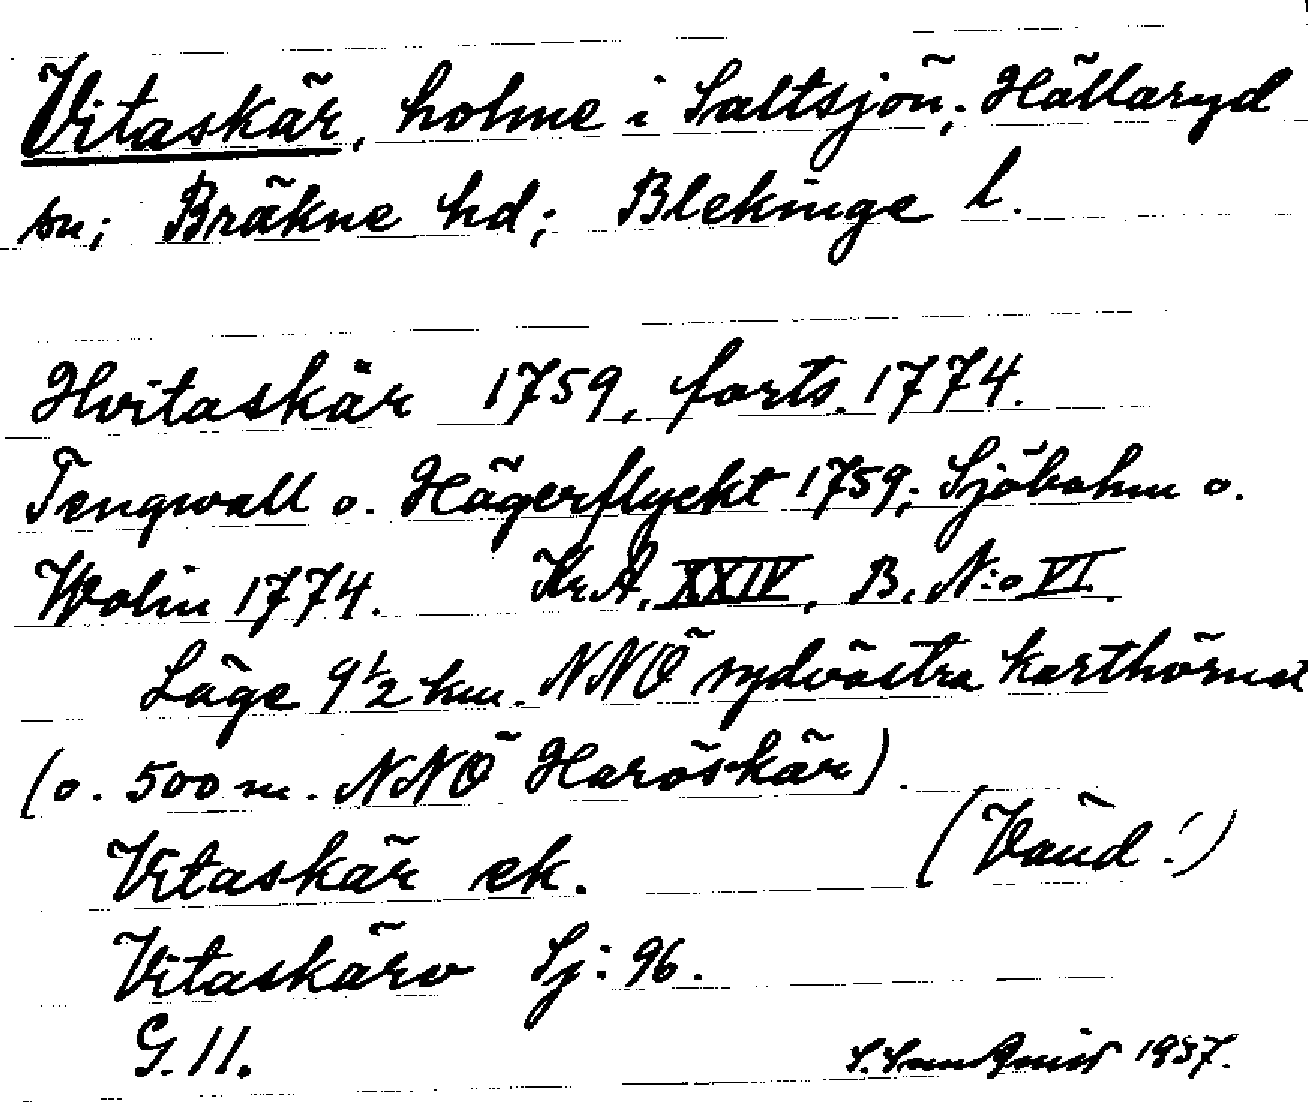 Vitaskär, holme i Saltsjön; Hällaryd
sn; Bräkne hd; Blekinge l.
Hvitaskär 1759, forts. 1774.
Tengwall o. Hägerflyckt 1759; Sjöbohm o.
Wolin 1774. Kr.A. XXIV, B, N:o VI.
Läge 9 1/2 km. NNÖ sydvästra karthörnet
(o. 500 m. NNÖ Haröskär).
Vitaskär ek. (Vänd!)
Vitaskärv Sj: 96.
G. 11.
1937.